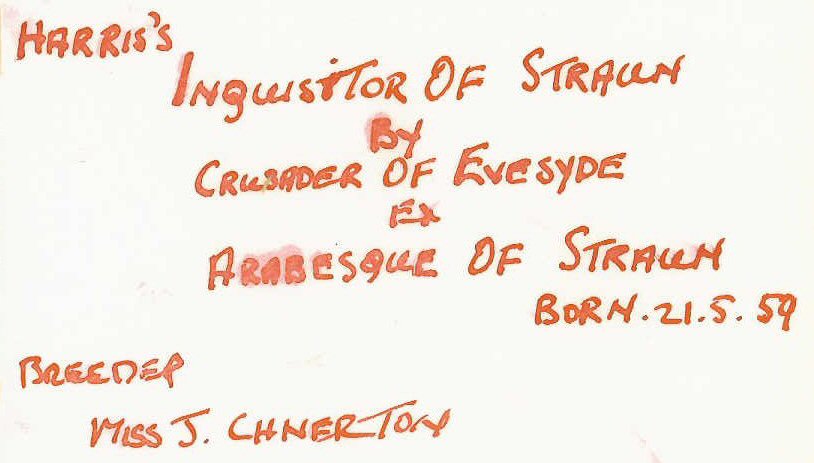 HARRIS'S
INQUISITOR OF STRAUN
BY
CRUSADER OF EVESYDE
EX
ARABESQUE OF STRAUN
BORN. 21. 5. 59
BREEDER
MISS J. CHNERTON